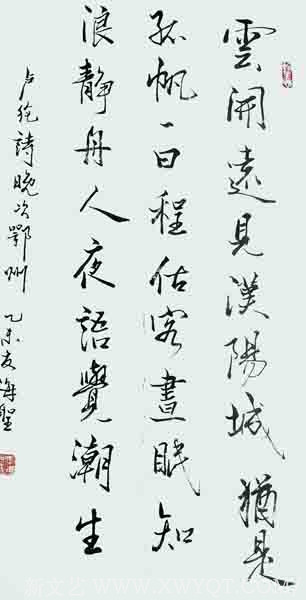 雲開遠見漢陽城猶是
孤帆一日程估客晝眠知
浪靜舟人夜語覺潮生
卢纶詩晚次鄂州 乙未友海聖